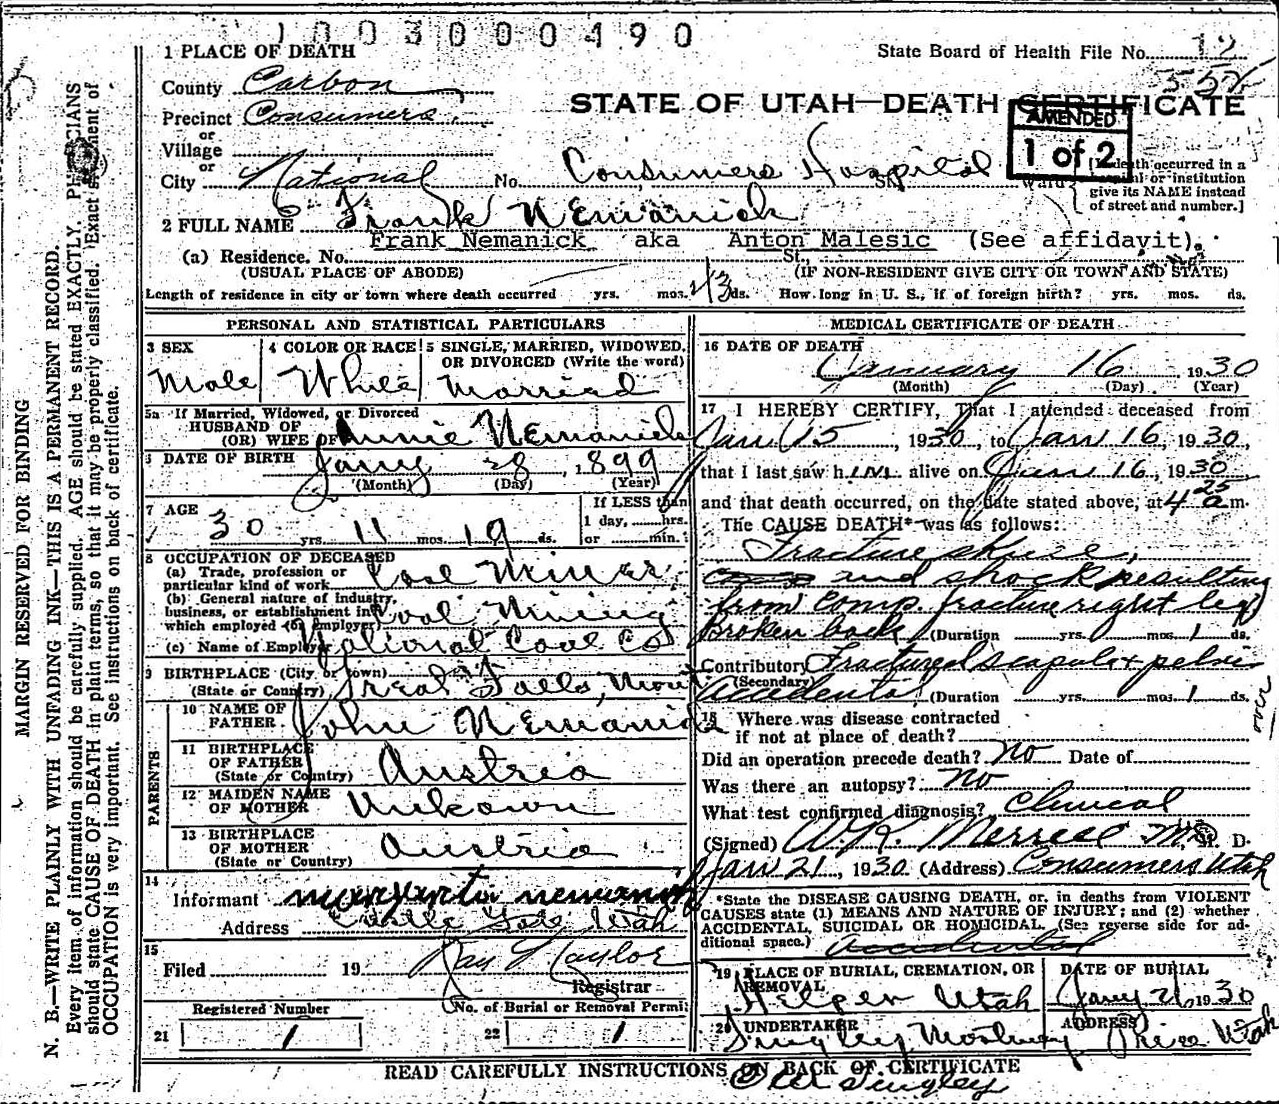 1003000490
1 PLACE OF DEATH
State Board of Health File No. 12
County Carbon
STATE OF UTAH—DEATH CERTIFICATE
AMENDED
1 of 2
Precinct Consumers
or
Village
or
City National No. Consumers Hospital St. Ward
[If death occurred in a hospital or institution give its NAME instead of street and number.]
2 FULL NAME Frank Nemanich
Frank Nemanick aka Anton Malesic (See affidavit).
(a) Residence. No. St.,
(USUAL PLACE OF ABODE) (IF NON-RESIDENT GIVE CITY OR TOWN AND STATE)
Length of residence in city or town where death occurred yrs. mos. ds. How long in U. S., if of foreign birth? yrs. mos. ds.
PERSONAL AND STATISTICAL PARTICULARS
3 SEX
Male
4 COLOR OR RACE
White
5 SINGLE, MARRIED, WIDOWED, OR DIVORCED (Write the word)
Married
5a If Married, Widowed, or Divorced
HUSBAND OF
(OR) WIFE OF Annie Nemanich
DATE OF BIRTH Jany 28, 1899
(Month) (Day) (Year)
7 AGE
30 yrs. 11 mos. 19 ds.
If LESS than
1 day, hrs.
or min.
8 OCCUPATION OF DECEASED
(a) Trade, profession or particular kind of work Coal Miner
(b) General nature of industry, business, or establishment in which employed (or employer) Coal Mining
(c) Name of Employer National Coal Co
9 BIRTHPLACE (City or town)
(State or Country) Great Falls, Mont
PARENTS
10 NAME OF FATHER John Nemanich
11 BIRTHPLACE OF FATHER
(State or Country) Austria
12 MAIDEN NAME OF MOTHER Unkown
13 BIRTHPLACE OF MOTHER
(State or Country) Austria
14
Informant Margareta Nemanich
Address Castle Gate Utah
15
Filed 19 Ray Naylor
Registrar
Registered Number No. of Burial or Removal Permit
21 1 22 1
MEDICAL CERTIFICATE OF DEATH
16 DATE OF DEATH
January 16 1930
(Month) (Day) (Year)
17 I HEREBY CERTIFY, That I attended deceased from
Jan 15, 1930, to Jan 16, 1930,
that I last saw him alive on Jan 16, 1930
and that death occurred, on the date stated above, at 4 25 a m.
The CAUSE DEATH* was as follows:
Fracture skull,
and shock resulting
from comp. fracture right leg
Broken back (Duration yrs. mos. 1 ds.
Contributory Fractured scapula + pelvis
(Secondary)
Accidental (Duration yrs. mos. 1 ds.
over
18 Where was disease contracted
if not at place of death?
Did an operation precede death? No Date of
Was there an autopsy? No
What test confirmed diagnosis? Clinical
(Signed) W.K. Merrell M. D.
Jan 21, 1930 (Address) Consumers Utah
*State the DISEASE CAUSING DEATH, or, in deaths from VIOLENT
CAUSES state (1) MEANS AND NATURE OF INJURY; and (2) whether
ACCIDENTAL, SUICIDAL OR HOMICIDAL. (See reverse side for ad-
ditional space.) Accidental
19 PLACE OF BURIAL, CREMATION, OR REMOVAL
Helper Utah
DATE OF BURIAL
Jany 21, 1930
20 UNDERTAKER
Tingley Mortuary
ADDRESS
Price Utah
READ CAREFULLY INSTRUCTIONS ON BACK OF CERTIFICATE
Tingley
MARGIN RESERVED FOR BINDING
N. B.—WRITE PLAINLY WITH UNFADING INK—THIS IS A PERMANENT RECORD.
Every item of information should be carefully supplied. AGE should be stated EXACTLY. PHYSICIANS
should state CAUSE OF DEATH in plain terms, so that it may be properly classified. Exact statement of
OCCUPATION is very important. See instructions on back of certificate.